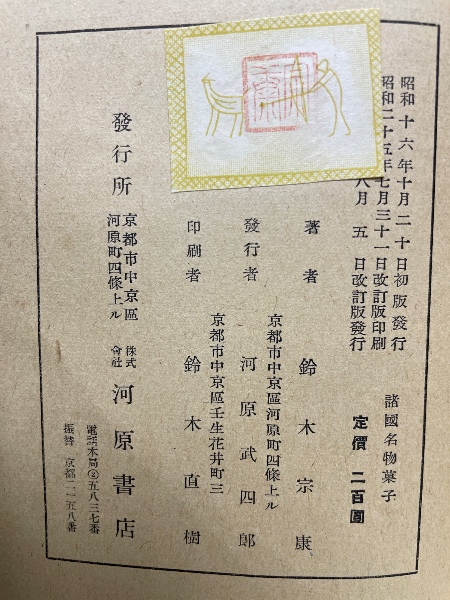 昭和十六年十月二十日初版發行
昭和二十五年七月三十一日改訂版印刷
八月五日改訂版發行
諸國名物菓子
定價 二百圓
著者 鈴木宗康
京都市中京區河原町四條上ル
發行者 河原武四郎
京都市中京區壬生花井町三
印刷者 鈴木直樹
京都市中京區
河原町四條上ル
發行所 株式會社 河原書店
電話本局②五八三七番
振替京都二一五八番